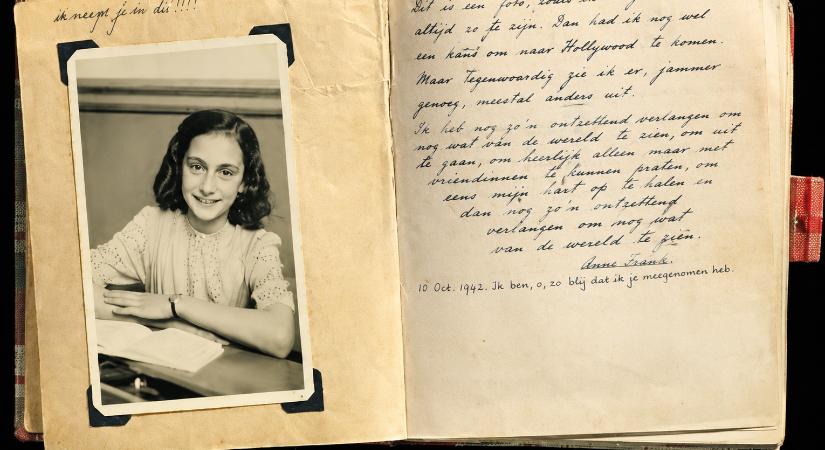 ik neem je in dit !!!!
Dit is een foto, zoals ik
altijd zo te zijn. Dan had ik nog wel
een kans om naar Hollywood te komen.
Maar tegenwoordig zie ik er, jammer
genoeg, meestal anders uit.
Ik heb nog zo'n ontzettend verlangen om
nog wat van de wereld te zien, om uit
te gaan, om heerlijk alleen maar met
vriendinnen te kunnen praten, om
eens mijn hart op te halen en
dan nog zo'n ontzettend
verlangen om nog wat
van de wereld te zien.
Anne Frank.
10 Oct. 1942. Ik ben, o, zo blij dat ik je meegenomen heb.